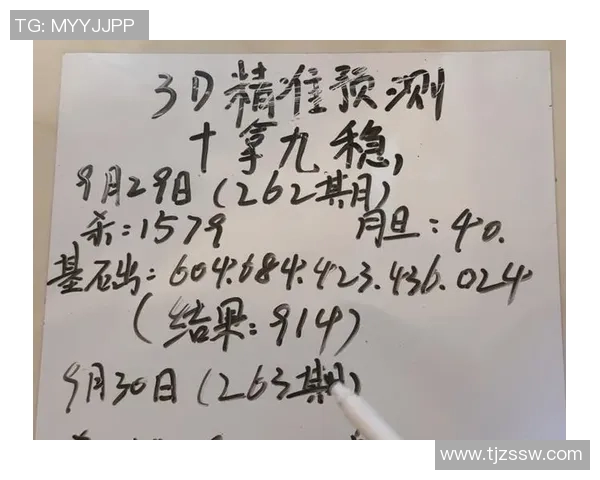 TG: MYYJJPP
3D精准预测
十拿九稳,
9月29日(262期)
杀:1579 胆:40.
基础出:604.684.423.436.024
(结果:914)
9月30日(263期)
www.tjzssw.com